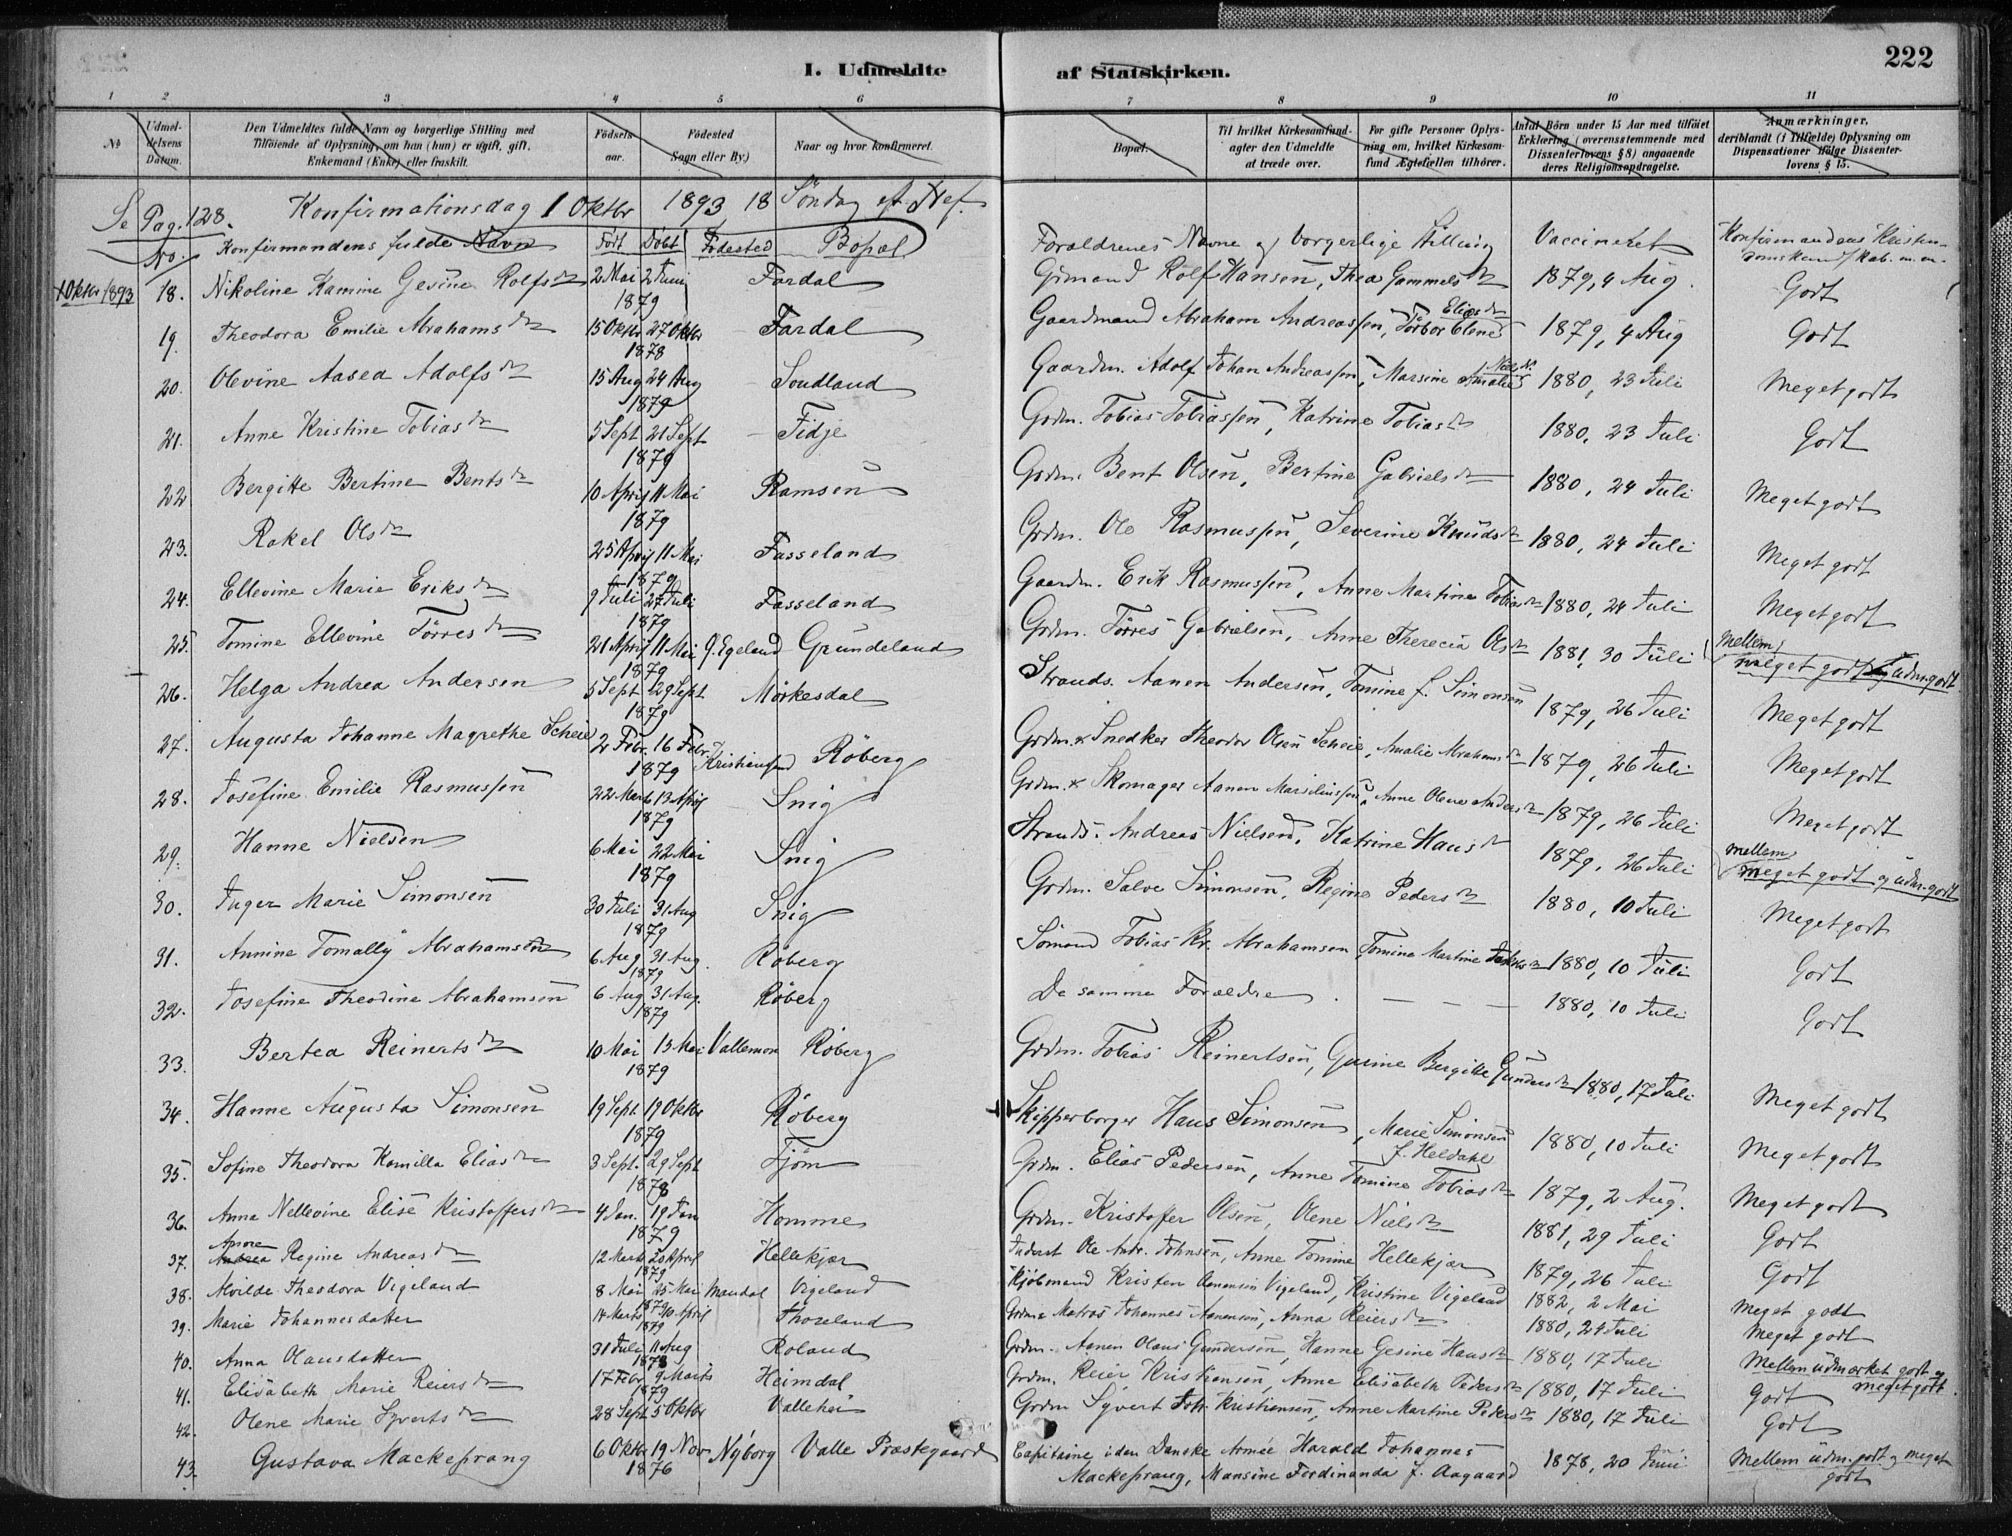 222
I. Udmeldte af Statskirken.
1 2 3 4 5 6 7 8 9 10 11
No
Udmeldelsens Datum.
Den Udmeldtes fulde Navn og borgerlige Stilling med Tilføiende af Oplysning, om han (hun) er ugift, gift, Enkemand (Enke) eller fraskilt.
Fødselsaar.
Fødested (Sogn eller By.)
Naar og hvor konfirmeret.
Bopæl.
Til hvilket Kirkesamfund agter den Udmeldte at træde over.
For gifte Personer Oplysning om, hvilket Kirkesamfund Ægtefællen tilhører.
Antal Børn under 15 Aar med tilføiet Erklæring (overensstemmende med Dissenterlovens § 8) angaaende deres Religionsopdragelse.
Anmærkninger, deriblandt (i Tilfælde) Oplysning om Dispensationer ifølge Dissenterlovens § 15.
Se Pag. 128. Konfirmationsdag 1 Oktbr 1893, 18 Söndag eft. Tref.
No. Konfirmandens fulde Navn Født Döbt Födested Bopæl Forældrenes Navne og borgerlige Stilling Vaccineret Konfirmandens Kristendomskundskab m.m.
1 Oktbr 1893 18. Nikoline Kamine Gesine Rolfsdr 2 Mai 2 Juni 1879 Fardal Grmand Rolf Hansen, Thea Gammelsdr 1879, 4 Aug. Godt
19. Theodora Emilie Abrahamsdr 15 Oktbr 27 Oktbr 1878 Fardal Gaardmand Abraham Andreassen, Torbor Elene Eliasdr 1879, 4 Aug Godt
20. Olevine Aasea Adolfsdr 15 Aug 24 Aug 1879 Soudland Gaardm. Adolf Johan Andreassen, Marsine Amalie Nielsdr 1880, 23 Juli Meget godt
21. Anne Kristine Tobiasdr 5 Sept 21 Sept 1879 Fidje Grdm. Tobias Tobiassen, Katrine Tobiasdr 1880, 23 Juli Godt
22 Bergitte Bertine Bentsdr 10 April 11 Mai 1879 Ramsen Grdm. Bent Olsen, Bertine Gabrielsdr 1880, 24 Juli Meget godt
23. Rakel Olsdr 25 April 11 Mai 1879 Fasseland Grdm. Ole Rasmussen, Severine Knudsdr 1880, 24 Juli Meget godt
24. Ellevine Marie Eriksdr 9 Juli 27 Juli 1879 Fasseland Gaardm. Erik Rasmussen, Anne Martine Tobiasdr 1880, 24 Juli Meget godt
25. Tomine Ellevine Törresdr 21 April 11 Mai 1879 Ø. Egeland Grundeland Grdm. Törres Gabrielsen, Anne Therecia Olsdr 1881, 30 Juli Mellem meget godt og udm. godt
26. Helga Andrea Andersen 5 Sept 29 Sept 1879 Mörkesdal Strands. Aanen Andersen, Tomine f. Simonsen 1879, 26 Juli Meget godt
27. Augusta Johanne Magrethe Scheie 2 Febr. 16 Febr 1879 Kristiansand Röberg Grdm. & Snedker Theodor Olsen Scheie, Amalie Abrahamsdr 1879, 26 Juli Meget godt
28. Josefine Emilie Rasmussen 22 Marts 13 April 1879 Snig Grdm. & Skomager Aanen Marseliussen, Anne Olene Andersdr 1879, 26 Juli Meget godt
29. Hanne Nielsen 6 Mai 22 Mai 1879 Snig Strands. Andreas Nielsen, Katrine Hansdr 1879, 26 Juli mellem meget godt og udm. godt
30. Inger Marie Simonsen 30 Juli 31 Aug 1879 Snig Grdm. Salve Simonsen, Regine Pedersdr 1880, 10 Juli Meget godt
31. Annine Tomally Abrahamsen 6 Aug 31 Aug. 1879 Röberg Sömand Tobias Kr. Abrahamsen Tomine Martine 1880, 10 Juli Godt
32. Josefine Theodine Abrahamsen 6 Aug 31 Aug. 1879 Röberg De samme Forældre . — — — 1880, 10 Juli Godt
33. Bertea Reinertsdr 10 Mai 13 Mai 1879 Vallemon Röberg Grdm. Tobias Reinertsen, Gurine Bergitte Gundersdr 1880, 17 Juli Meget godt
34. Hanne Augusta Simonsen 19 Sept 19 Oktbr 1879 Röberg Skipperborger Hans Simonsen, Marie Simonsen f. Heldahl 1880, 10 Juli Meget godt
35. Sofine Theodora Kamilla Eliasdr 3 Sept. 29 Sept 1878 Fjöm Grdm. Elias Pedersen, Anne Tomine Tobiasdr 1879, 2 Aug. Meget godt
36. Anna Nellevine Elise Kristoffersdr 4 Jan. 19 Jan 1879 Homme Grdm. Kristofer Olsen, Olene Nielsdr 1881, 29 Juli Godt
37. Andrea Regine Andreasdr 12 Marts 20 April 1879 Hellekjær Inderst Ole Andr. Johnsen, Anne Tomine Hellekjær 1879, 26 Juli Godt
38. Alvilde Theodora Vigeland 8 Mai 25 Mai Mandal Vigeland Kjöbmand Kristen Aanensen Vigeland, Kristine Vigeland 1882, 2 Mai Meget godt
39. Marie Johannesdatter 14 Marts 20 April 1879 Thoreland Grdm. & Matros Johannes Aanensen, Anna Reiersdr 1880, 24 Juli Meget godt
40. Anna Olausdatter 31 Juli 11 Aug 1878 Roland Grdm. Aanen Olaus Gundersen, Hanne Gesine Hansdr 1880, 17 Juli Mellem udmærket godt og meget godt
41. Elisabeth Marie Reiersdr 17 Febr 9 Marts 1879 Heimdal Grdm. Reier Kristiansen, Anne Elisabeth Pedersdr 1880, 17 Juli Godt
42. Olene Marie Syvertsdr 28 Sept 5 Oktbr Vallehei Grdm Syvert Joh. Kristiansen, Anne Martine Petersdr 1880, 17 Juli Godt
43. Gustava Mackeprang 6 Oktbr 19 Nov 1876 Nyborg Valle Præstegaard Capitaine i den Danske Armée Harald Johannes Mackeprang, Mansine Ferdinanda f. Aagaard 1878, 20 Juni Mellem udm. godt og meget godt